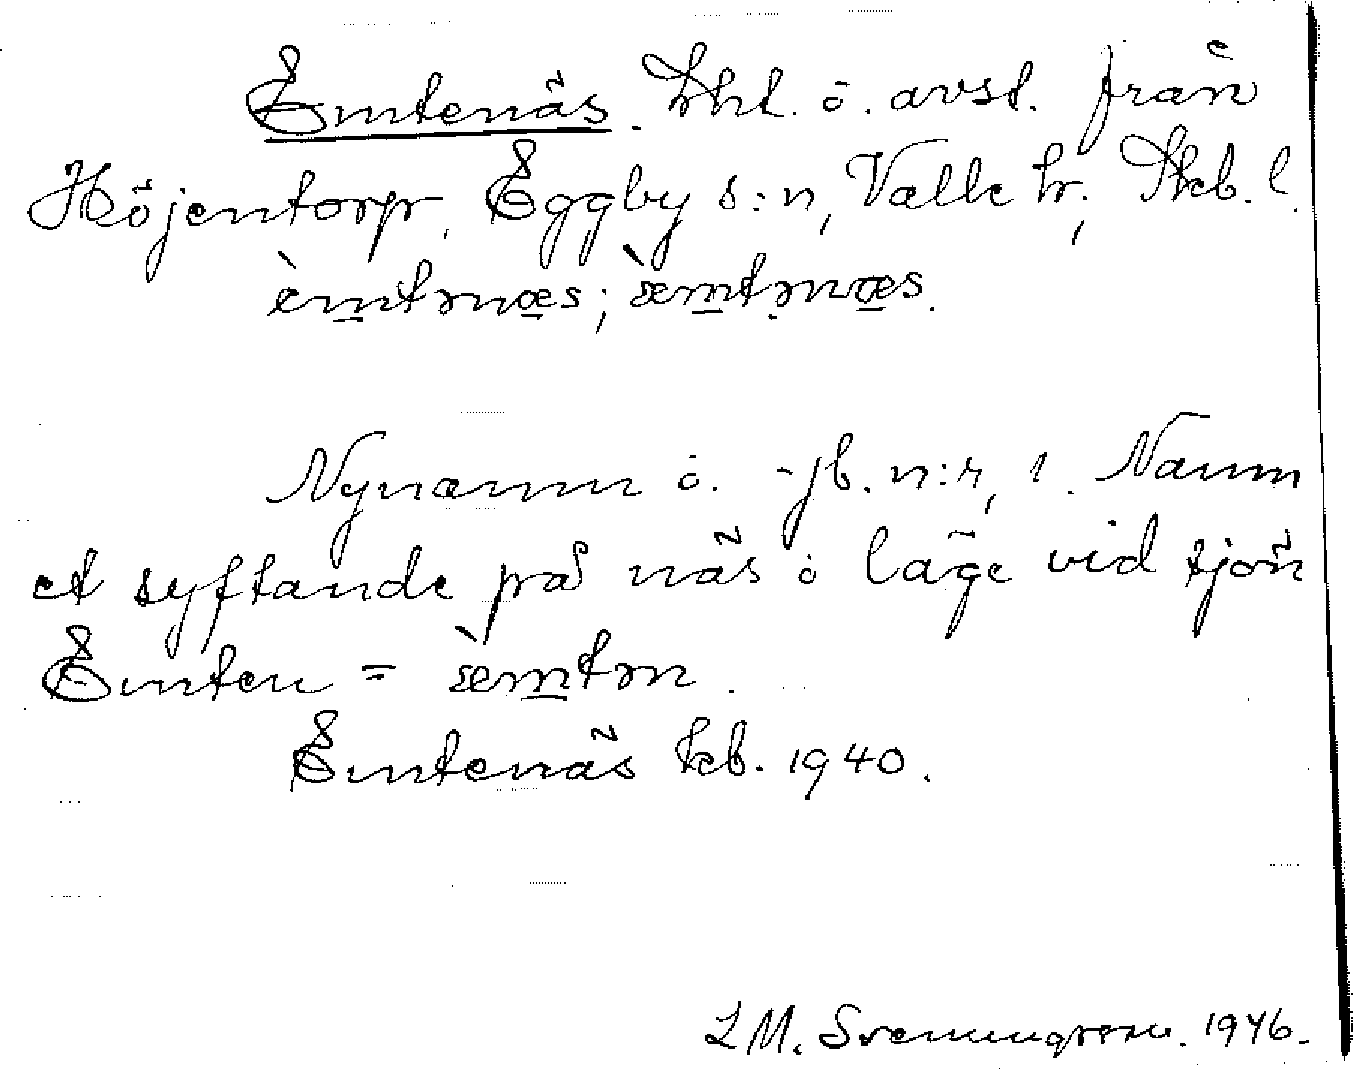 Emtenäs. Lht. o. avst. från
Höjentorp, Eggby s:n, Valle hr, Skb. l.
èmtənæs; æ̀mtənæs.
Nynamn o. jb. n:r, 1. Namn
et syftande på näs o läge vid sjön
Emten = æ̀mtən.
Emtenäs kb. 1940.
L M. Svenungsson. 1946.